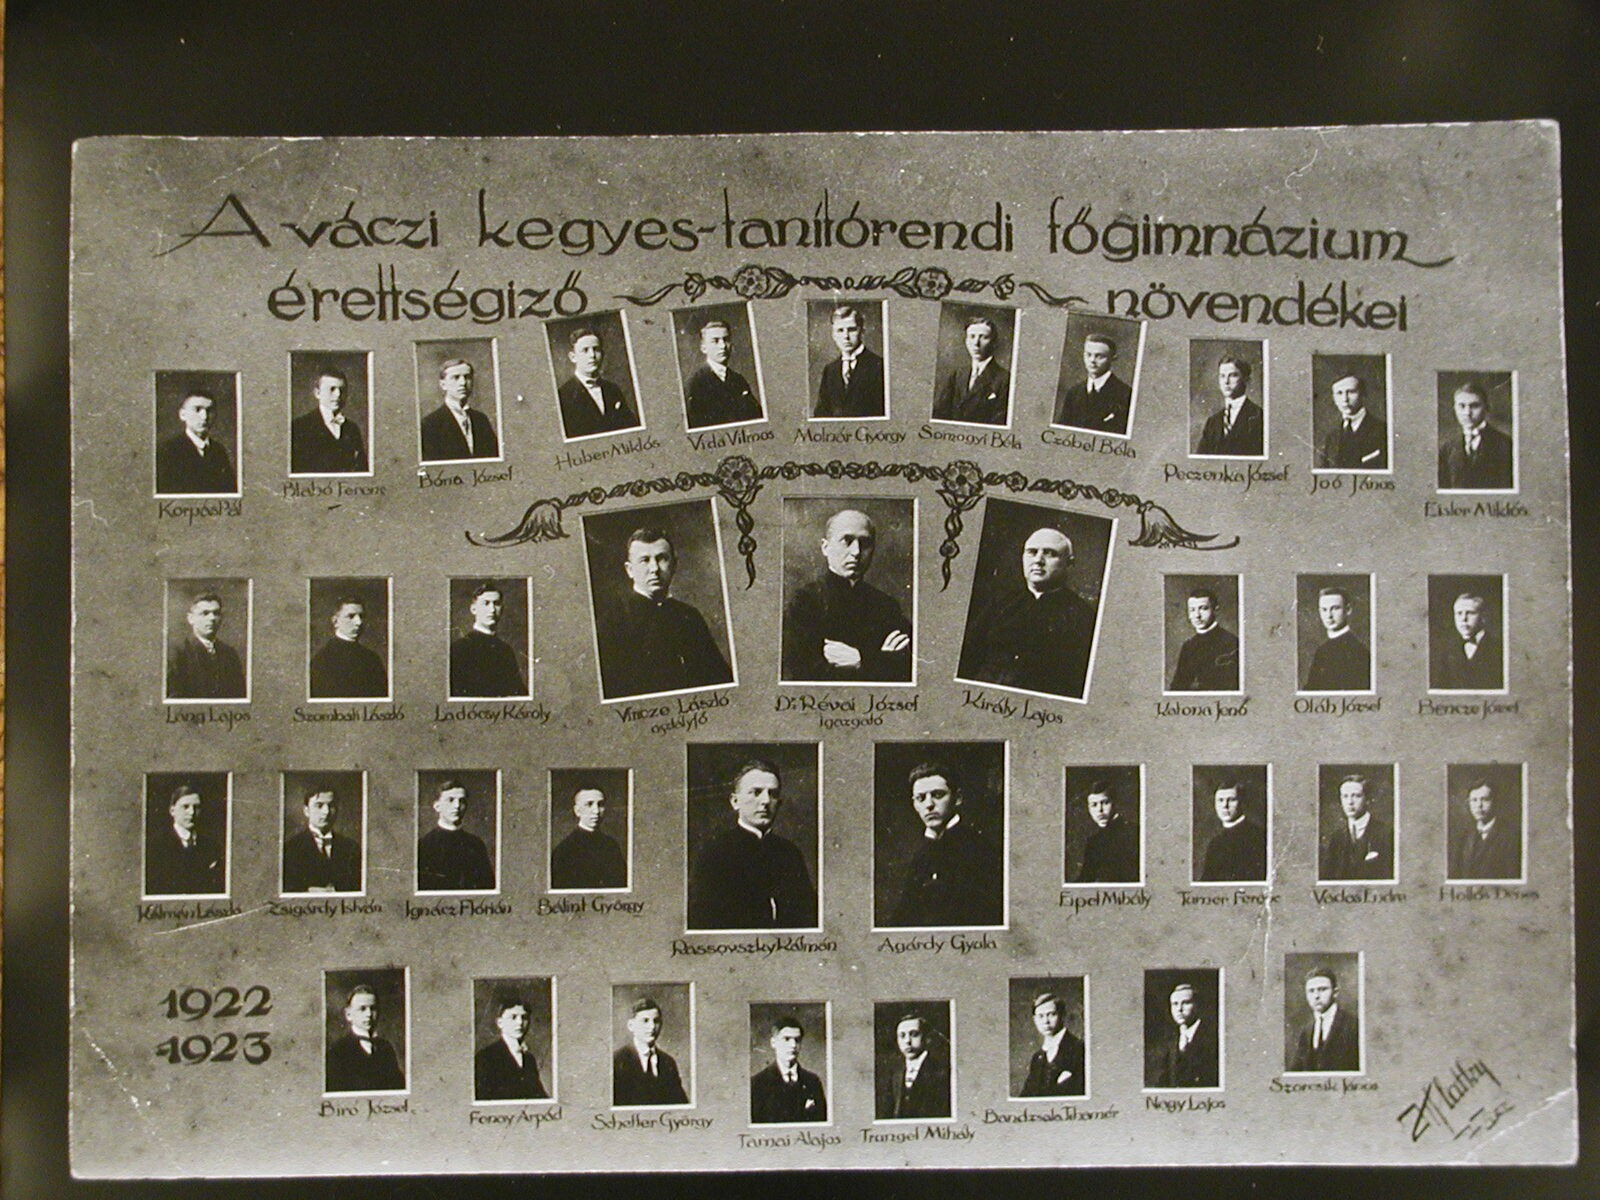 A váczi kegyes-tanítórendi főgimnázium
érettségiző növendékei
Korpás Pál
Blahó Ferenc
Bória József
Huber Miklós
Vida Vilmos
Molnár György
Somogyi Béla
Czóbel Béla
Peczenka József
Joó János
Eisler Miklós
Láng Lajos
Szombati László
Ladócsy Károly
Vincze László
osztályfő
Dr. Révai József
igazgató
Király Lajos
Katona Jenő
Oláh József
Bencze József
Kálmán László
Zsigárdy István
Ignácz Flórián
Bálint György
Rassovszky Kálmán
Agárdy Gyula
Eipel Mihály
Turner Ferenc
Vadas Endre
Hollós Dénes
1922
1923
Biró József
Fonay Árpád
Scheffer György
Tarnai Alajos
Trungel Mihály
Bandzsala Tihamér
Nagy Lajos
Szorcsik János